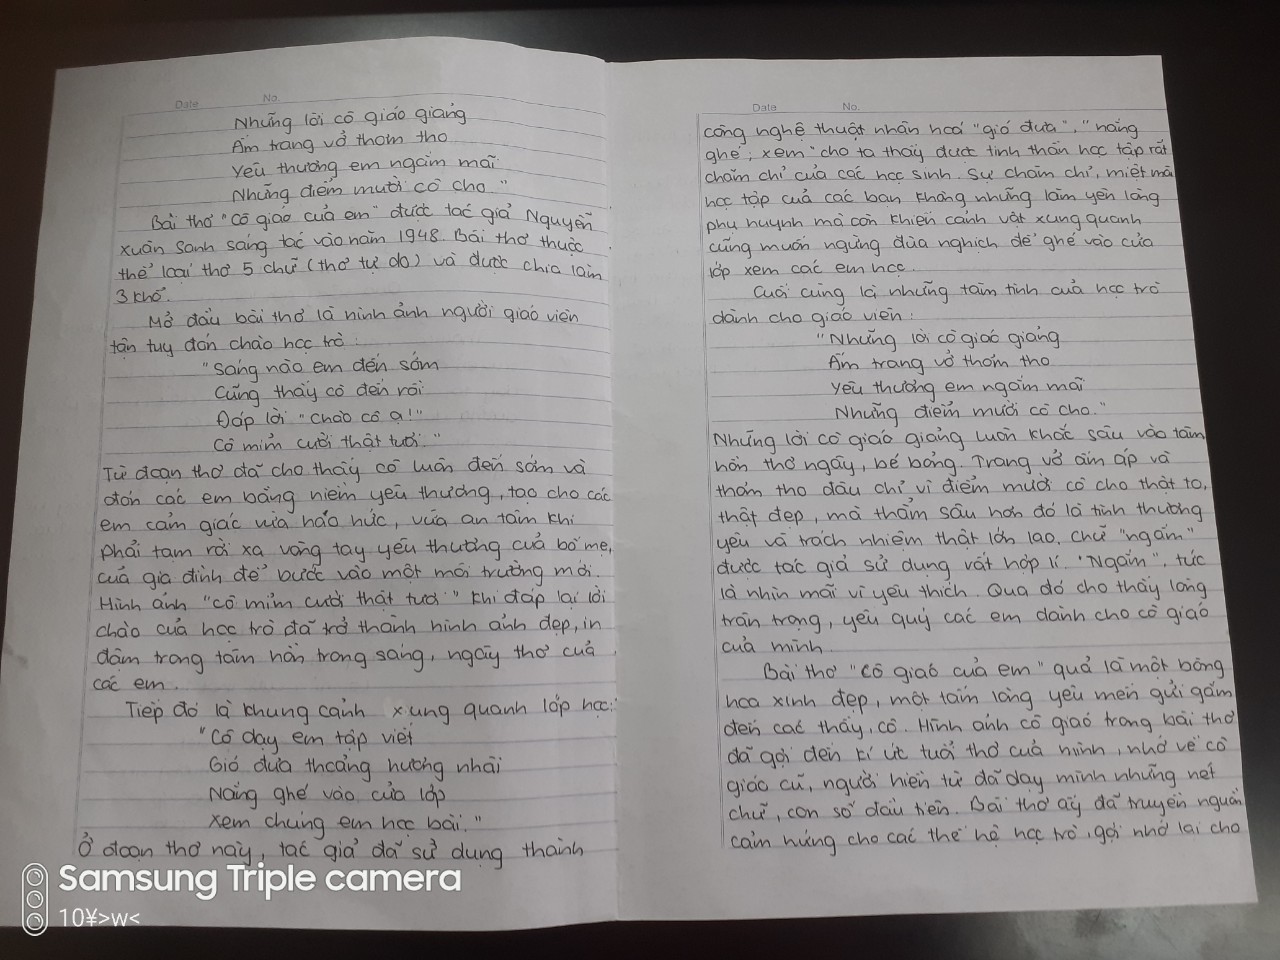 Date No.
Những lời cô giáo giảng
Ấm trang vở thơm tho
Yêu thương em ngắm mãi
Những điểm mười cô cho"
Bài thơ "Cô giáo của em" được tác giả Nguyễn
Xuân Sanh sáng tác vào năm 1948. Bài thơ thuộc
thể loại thơ 5 chữ (thơ tự do) và được chia làm
3 khổ.
Mở đầu bài thơ là hình ảnh người giáo viên
tận tuỵ đón chào học trò:
"Sáng nào em đến sớm
Cũng thấy cô đến rồi
Đáp lời "Chào cô ạ!"
Cô mỉm cười thật tươi."
Từ đoạn thơ đã cho thấy cô luôn đến sớm và
đón các em bằng niềm yêu thương, tạo cho các
em cảm giác vừa háo hức, vừa an tâm khi
phải tạm rời xa vòng tay yêu thương của bố mẹ,
của gia đình để bước vào một môi trường mới.
Hình ảnh "cô mỉm cười thật tươi" khi đáp lại lời
chào của học trò đã trở thành hình ảnh đẹp, in
đậm trong tâm hồn trong sáng, ngây thơ của
các em.
Tiếp đó là khung cảnh xung quanh lớp học:
"Cô dạy em tập viết
Gió đưa thoảng hương nhài
Nắng ghé vào cửa lớp
Xem chúng em học bài."
Ở đoạn thơ này, tác giả đã sử dụng thành
Date No.
công nghệ thuật nhân hoá "gió đưa", "nắng
ghé, xem" cho ta thấy được tinh thần học tập rất
chăm chỉ của các học sinh. Sự chăm chỉ, miệt mài
học tập của các bạn không những làm yên lòng
phụ huynh mà còn khiến cảnh vật xung quanh
cũng muốn ngừng đùa nghịch để ghé vào cửa
lớp xem các em học.
Cuối cùng là những tâm tình của học trò
dành cho giáo viên:
"Những lời cô giáo giảng
Ấm trang vở thơm tho
Yêu thương em ngắm mãi
Những điểm mười cô cho."
Những lời cô giáo giảng luôn khắc sâu vào tâm
hồn thơ ngây, bé bỏng. Trang vở ấm áp và
thơm tho đâu chỉ vì điểm mười cô cho thật to,
thật đẹp, mà thẳm sâu hơn đó là tình thương
yêu và trách nhiệm thật lớn lao. Chữ "ngắm"
được tác giả sử dụng vất hợp lí. "Ngắm", tức
là nhìn mãi vì yêu thích. Qua đó cho thấy lòng
trân trọng, yêu quý các em dành cho cô giáo
của mình.
Bài thơ "Cô giáo của em" quả là một bông
hoa xinh đẹp, một tấm lòng yêu mến gửi gắm
đến các thầy, cô. Hình ảnh cô giáo trong bài thơ
đã gợi đến kí ức tuổi thơ của mình, nhớ về cô
giáo cũ, người hiền từ đã dạy mình những nét
chữ, con số đầu tiên. Bài thơ ấy đã truyền nguồn
cảm hứng cho các thế hệ học trò, gợi nhớ lại cho
Samsung Triple camera
10¥>w<